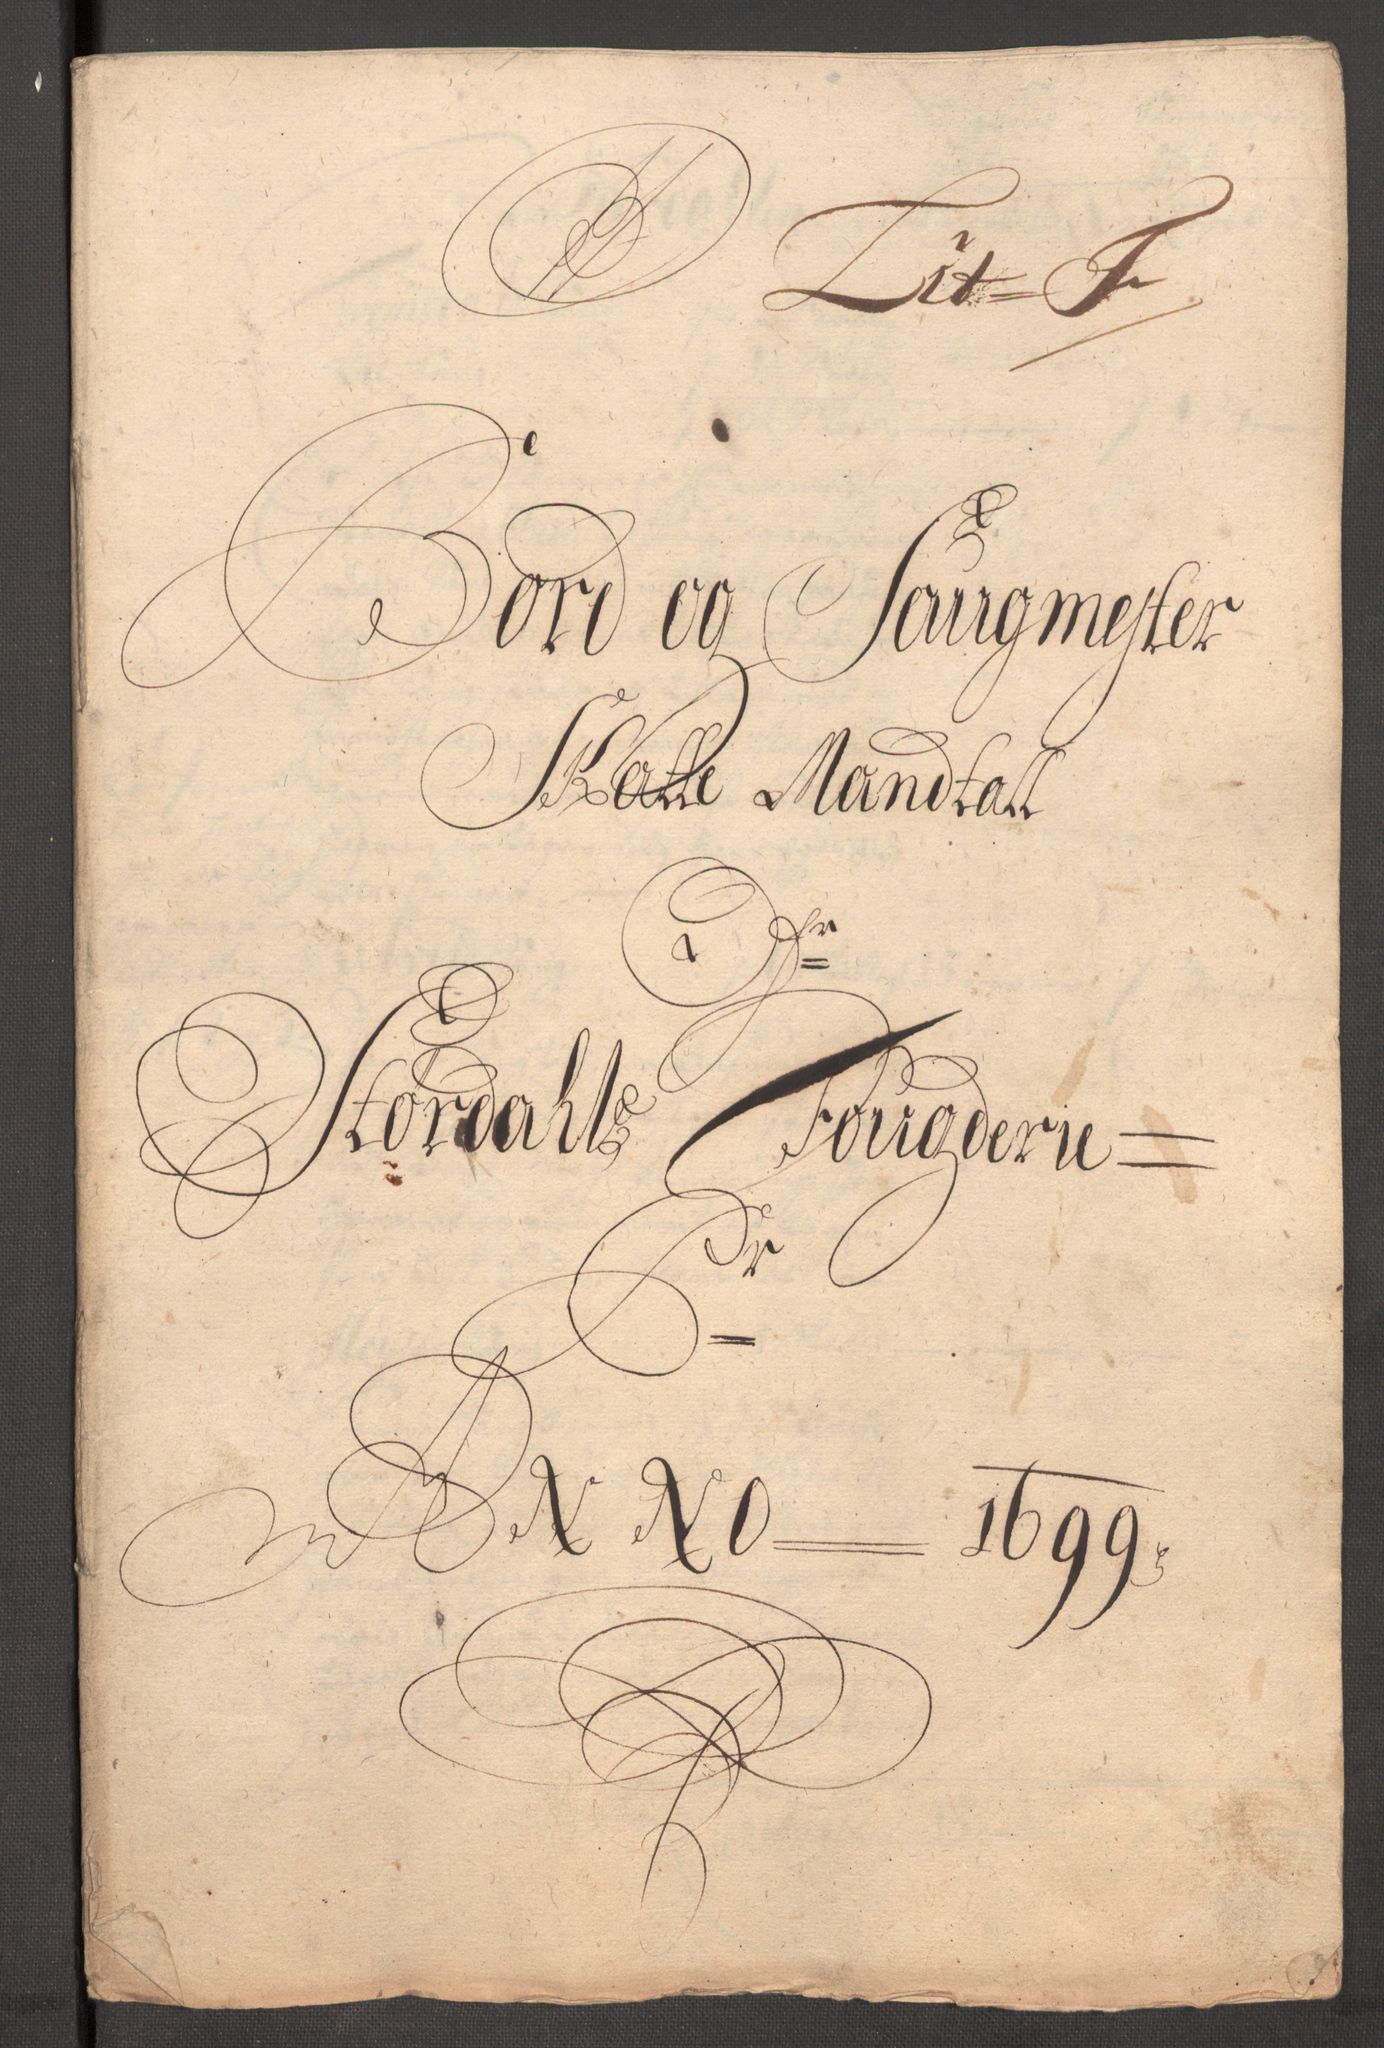 Lit= F
Bord og Saugmester
Skatte Mandtall
Stördahls Fougderie=
ANNO = 1699